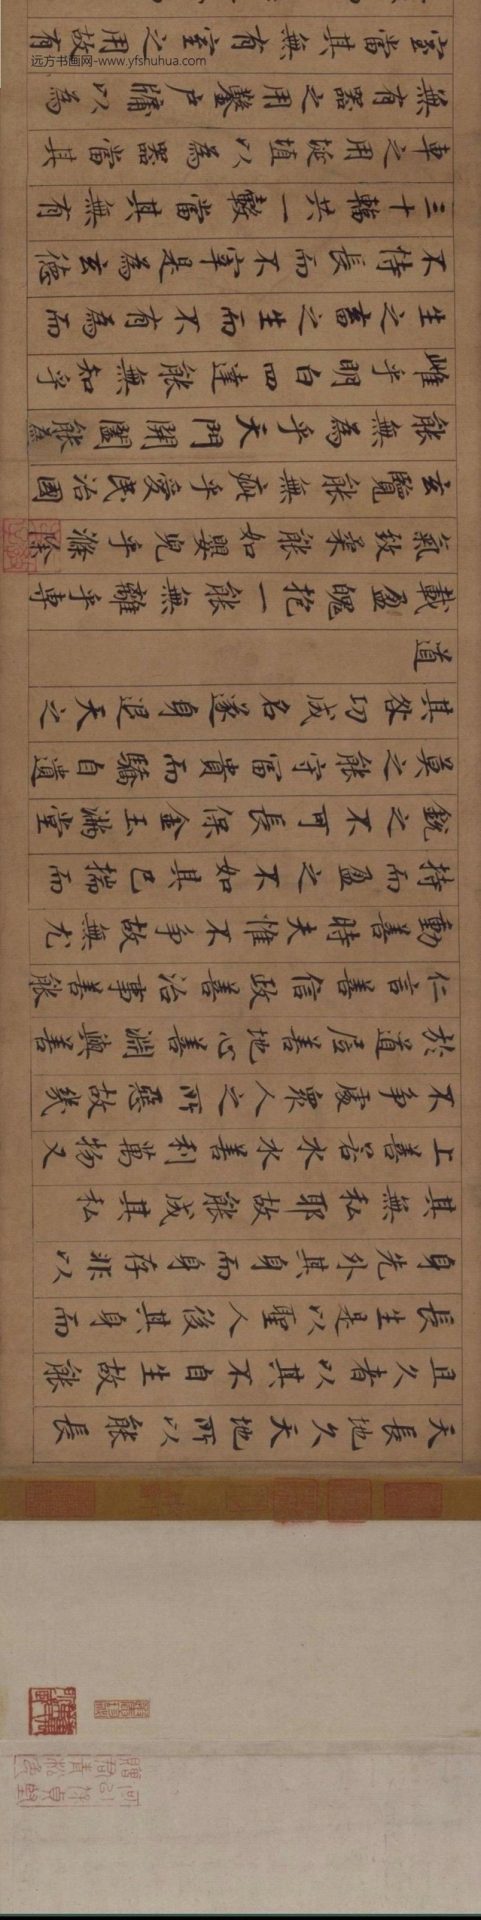 天長地久天地所以能長
且久者以其不自生故能
長生是以聖人後其身而
身先外其身而身存非以
其無私耶故能成其私
上善若水水善利萬物又
不爭處衆人之所惡故幾
於道居善地心善淵與善
仁言善信政善治事善能
動善時夫惟不爭故無尤
持而盈之不如其已揣而
銳之不可長保金玉滿堂
莫之能守富貴而驕自遺
其咎功成名遂身退天之
道
載盈魄抱一能無離乎專
氣致柔能如嬰兒乎滌除
玄覽能無疵乎愛民治國
能無為乎天門開闔能為
雌乎明白四達能無知乎
生之畜之生而不有為而
不恃長而不宰是為玄德
三十輻共一轂當其無有
車之用埏埴以為器當其
無有器之用鑿戶牖以為
室當其無有室之用故有
远方书画网-www.yfshuhua.com